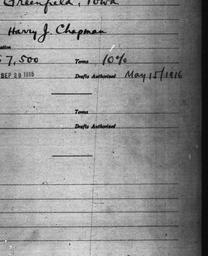 Greenfield, Iowa
Harry J. Chapman
$7,500 Terms 10%
SEP 29 1915 Drafts Authorized May 15/1916
Terms
Drafts Authorized